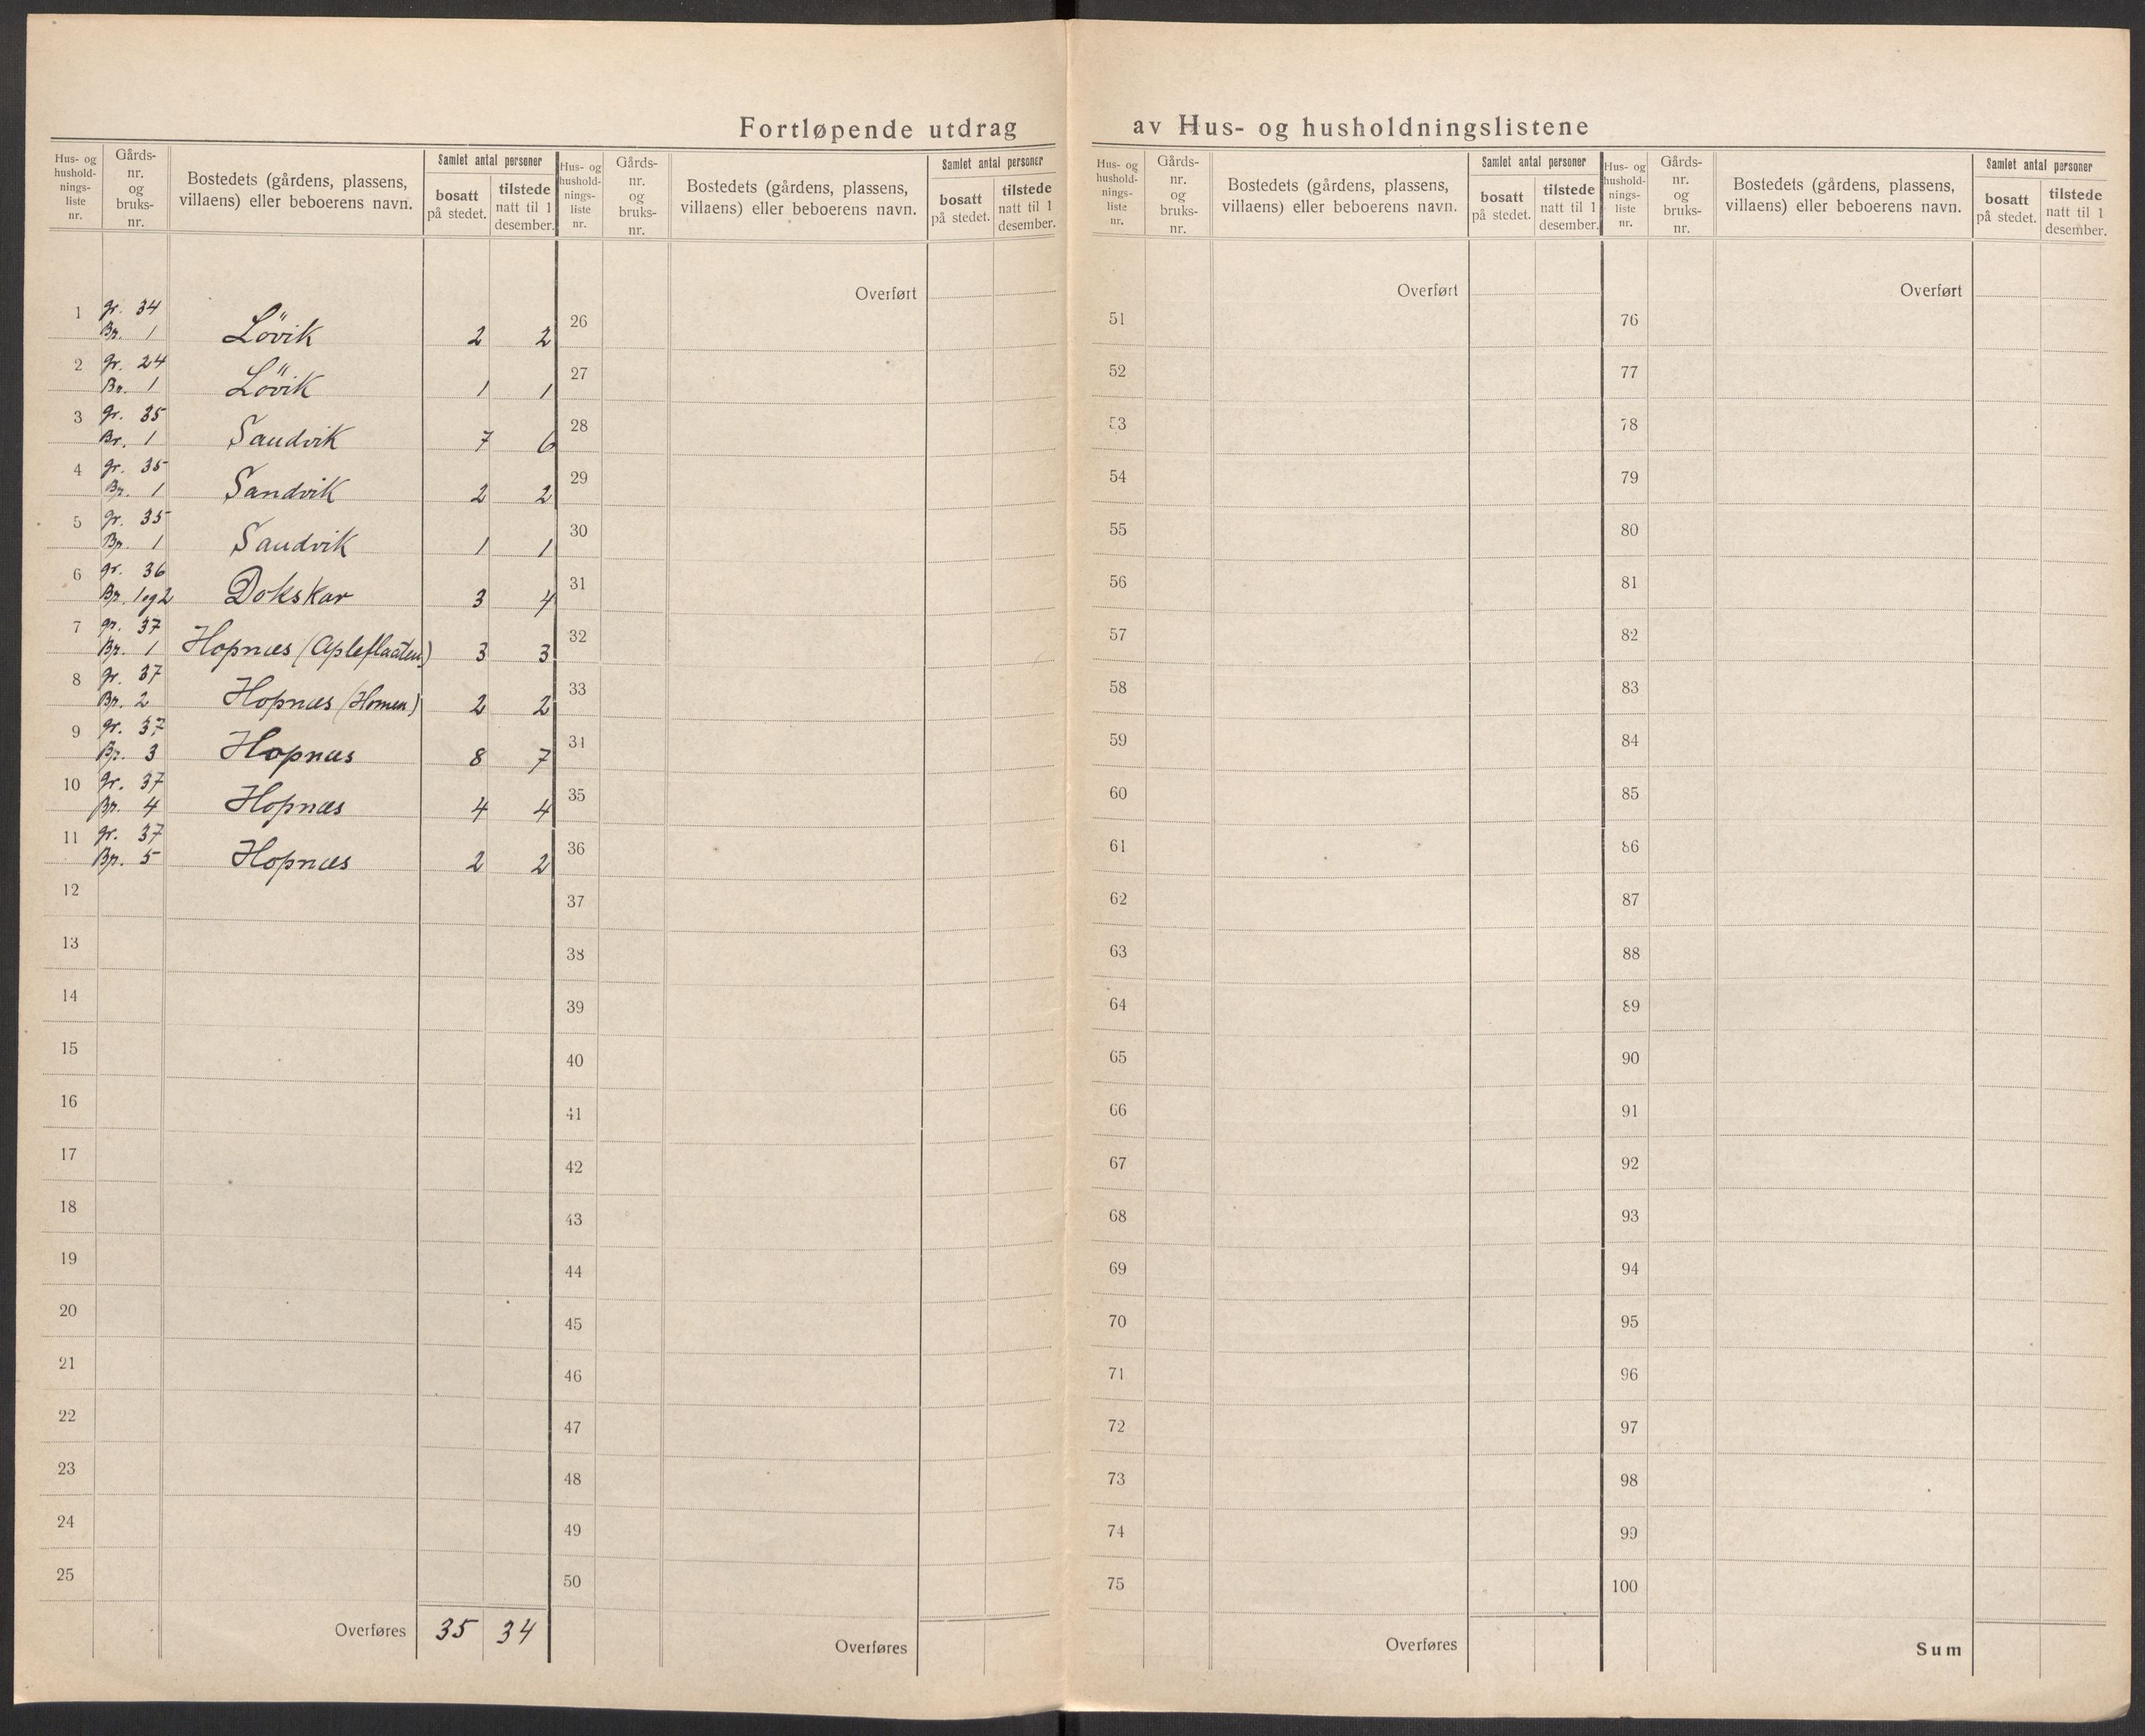 Fortløpende utdrag av Hus- og husholdningslistene
Hus- og
hushold-
nings-
liste
nr.
Gårds-
nr.
og
bruks-
nr.
Bostedets (gårdens, plassens,
villaens) eller beboerens navn.
Samlet antal personer
bosatt
på stedet.
tilstede
natt til 1
desember.
1 gr. 34
Br. 1 Lövik 2 2
2 gr. 24
Br. 1 Lövik 1 1
3 gr. 35
Br. 1 Sandvik 7 6
4 gr. 35
Br. 1 Sandvik 2 2
5 gr. 35
Br. 1 Sandvik 1 1
6 gr. 36
Br. 1 og 2 Dokskar 3 4
7 gr. 37
Br. 1 Hopnæs (Apleflaaten) 3 3
8 gr. 37
Br. 2 Hopnæs (Homen) 2 2
9 gr. 37
Br. 3 Hopnæs 8 7
10 gr. 37
Br. 4 Hopnæs 4 4
11 gr. 37
Br. 5 Hopnæs 2 2
12
13
14
15
16
17
18
19
20
21
22
23
24
25
Overføres 35 34
Hus- og
hushold-
nings-
liste
nr.
Gårds-
nr.
og
bruks-
nr.
Bostedets (gårdens, plassens,
villaens) eller beboerens navn.
Samlet antal personer
bosatt
på stedet.
tilstede
natt til 1
desember.
Overført
26
27
28
29
30
31
32
33
34
35
36
37
38
39
40
41
42
43
44
45
46
47
48
49
50
Overføres
Hus- og
hushold-
nings-
liste
nr.
Gårds-
nr.
og
bruks-
nr.
Bostedets (gårdens, plassens,
villaens) eller beboerens navn.
Samlet antal personer
bosatt
på stedet.
tilstede
natt til 1
desember.
Overført
51
52
53
54
55
56
57
58
59
60
61
62
63
64
65
66
67
68
69
70
71
72
73
74
75
Overføres
Hus- og
hushold-
nings-
liste
nr.
Gårds-
nr.
og
bruks-
nr.
Bostedets (gårdens, plassens,
villaens) eller beboerens navn.
Samlet antal personer
bosatt
på stedet.
tilstede
natt til 1
desember.
Overført
76
77
78
79
80
81
82
83
84
85
86
87
88
89
90
91
92
93
94
95
96
97
98
99
100
Sum